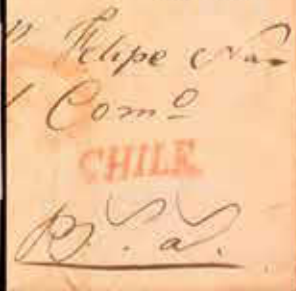 Felipe
Com.º
CHILE
B.ˢ aˢ.